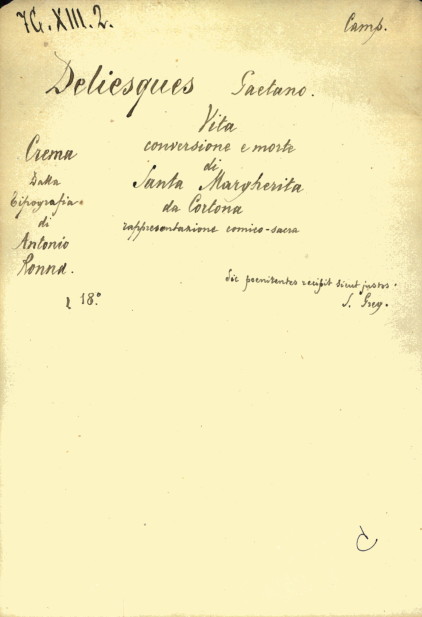 7G.XIII.2.
Camp.
Deliesques Gaetano.
Vita
conversione e morte
di
Santa Margherita
da Cortona
rappresentazione comico-sacra
Crema
Dalla
Tipografia
di
Antonio
Ronna.
18.°
Sic poenitentes recipit sicut justos.
S. Greg.
C